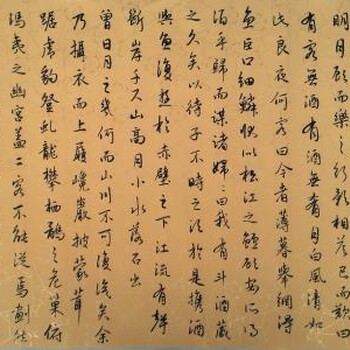 明月顧而樂之行歌相答已而歎曰
有客無酒有酒無肴月白風清如
此良夜何客曰今者薄暮舉網得
魚巨口細鱗狀似松江之鱸顧安所得
酒乎歸而謀諸婦婦曰我有斗酒藏
之久矣以待子不時之須於是攜酒
與魚復遊於赤壁之下江流有聲
斷岸千尺山高月小水落石出
曾日月之幾何而山川不可復識矣余
乃攝衣而上履巉巖披蒙茸
踞虎豹登虬龍攀栖鶻之危巢俯
馮夷之幽宮蓋二客不能從焉劃然